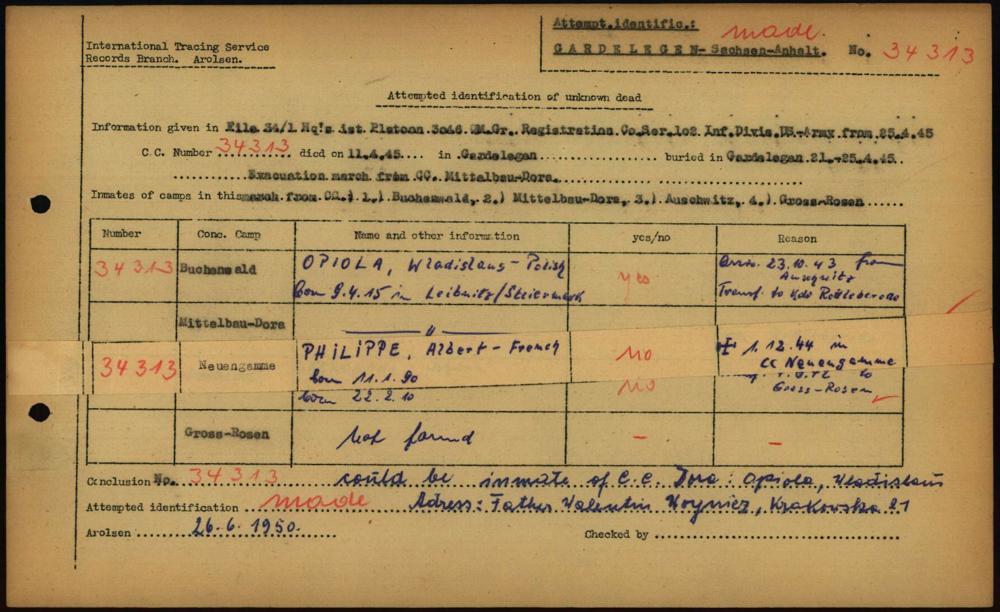 Attempt.identific.: made.
International Tracing Service
Records Branch. Arolsen.
GARDELEGEN-Sachsen-Anhalt. No. 34313
Attempted identification of unknown dead
Information given in File 34/1 Hq's 1st. Platoon. 3046. QM.Gr. Registration.Co.Ser.102 Inf.Divis.US-Army.from.25.4.45
C.C. Number 34313 died on 11.4.45 in Gardelegen buried in Gardelegen 21.-25.4.45.
Evacuation march from CC. Mittelbau-Dora.
Inmates of camps in this march from CC. 1.) Buchenwald, 2.) Mittelbau-Dora, 3.) Auschwitz, 4.) Gross-Rosen
Number Conc. Camp Name and other information yes/no Reason
34313 Buchenwald OPIOLA, Wladislaus - Polish yes arriv. 23.10.43 from
born 9.4.15 in Leibnitz/Steiermark
Transf. to Kdo
Mittelbau-Dora "
34313 Neuengamme PHILIPPE, Albert - French no ✝ 1.12.44 in
born 11.1.90 CC Neuengamme
born 22.2.10 no to
Gross-Rosen
Gross-Rosen not found - -
Conclusion No. 34313 could be inmate of C.C. Dora: Opiola, Wladislaus
Attempted identification made Adress: Father Walentin Woynicz, Krakowska 21
Arolsen 26.6.1950. Checked by